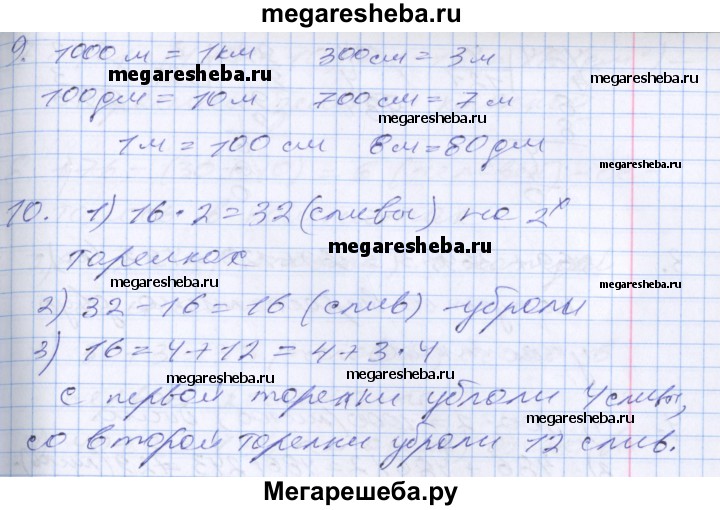 megaresheba.ru
9. 1000м = 1км 300см = 3м
megaresheba.ru
megaresheba.ru
100дм = 10м 700см = 7м
megaresheba.ru
1м = 100см 8м = 80дм
megaresheba.ru
10. 1) 16·2=32 (сливы) на 2х
megaresheba.ru
тарелках
megaresheba.ru
megaresheba.ru
2) 32-16=16 (слив) - убрали
3) 16=4+12=4+3·4
megaresheba.ru
megaresheba.ru
с первой тарелки убрали 4 сливы,
megaresheba.ru
со второй тарелки убрали 12 слив.
Мегарешеба.ру